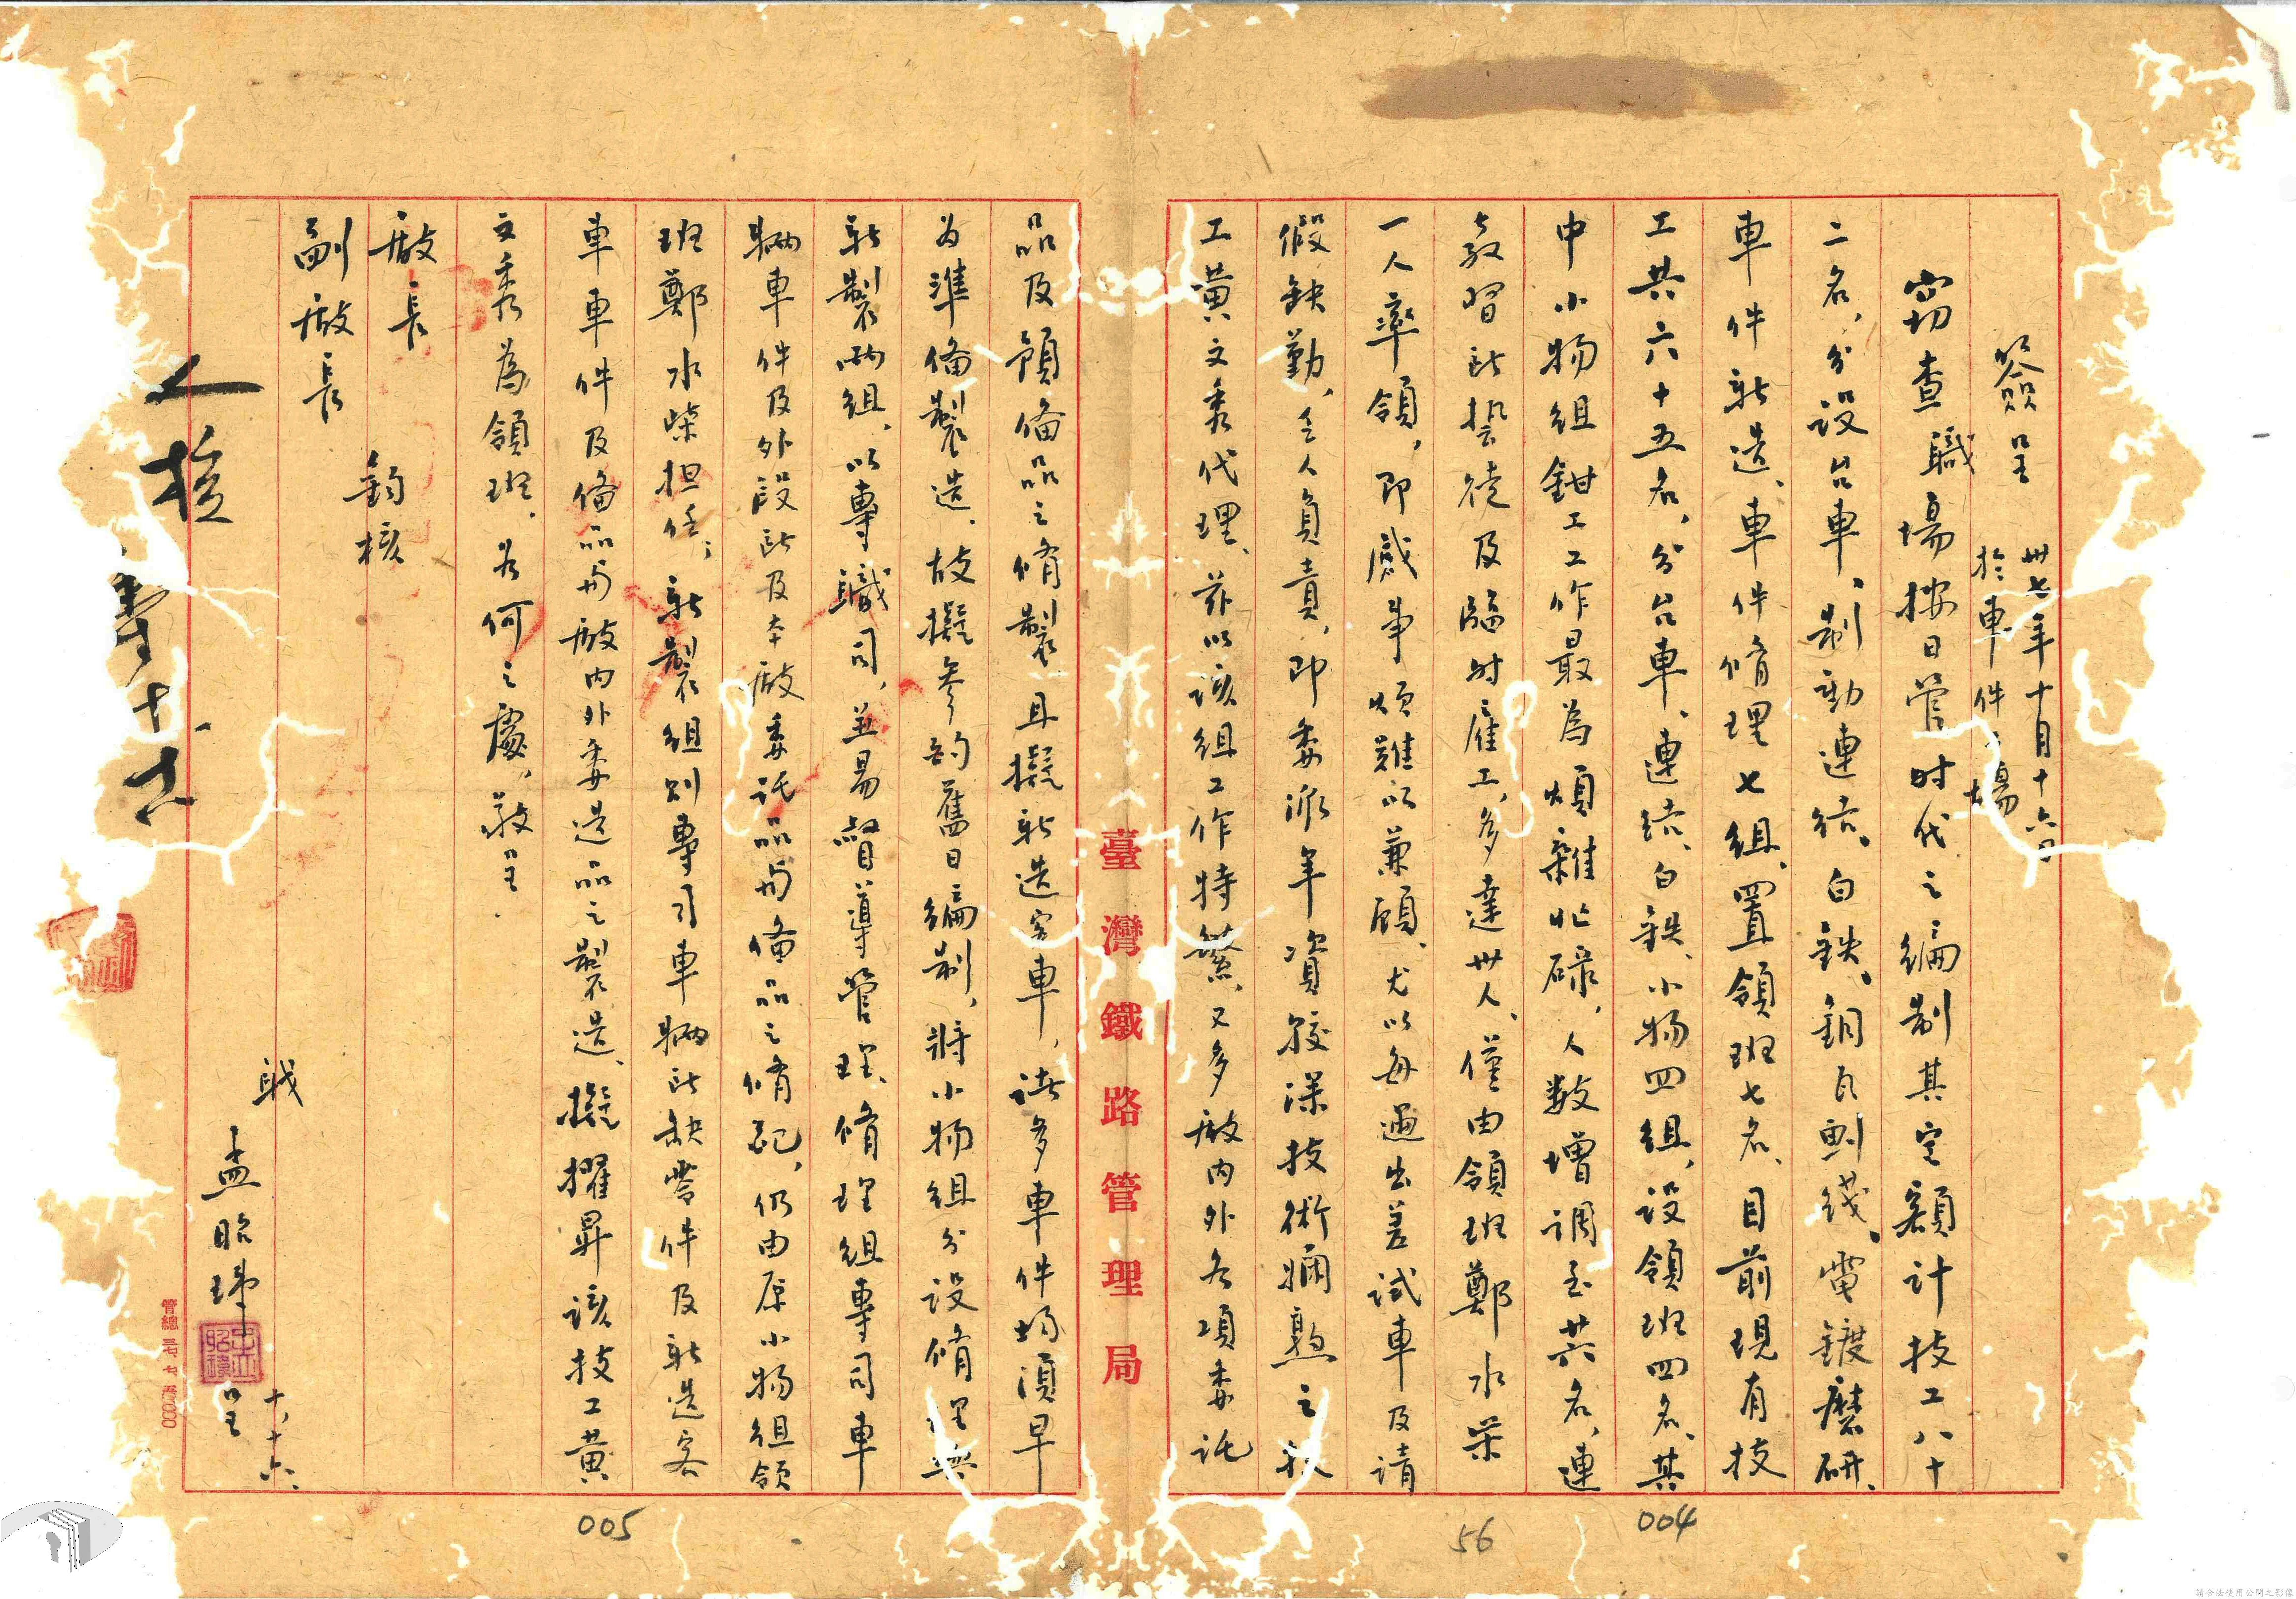 簽呈
卅七年十月十六日
於車件場
窃查職場按日管时代之編制其定額計技工八十
二名，分設台車、制動連结、白鉄、銅瓦剸线、電鍍磨研、
車件新造、車件脩理七組、置領班七名、目前現有技
工共六十五名，分台車、連结、白鉄、小物四組，設領班四名、其
中小物組鉗工工作最為煩雜忙碌，人数增调至共名，連
教習此芸徒及臨时雇工，多達卅人、僅由領班鄭水柴
一人率領，即感事煩難以兼顧、尤以每遇出差試車及請
假缺勤，乏人負責，即委派年資較深技術嫻熟之
工黄文秀代理、茲以该組工作特繁，又多廠内外各項委託
臺灣鐵路管理局
品及預備品之脩製，且擬新造客車，諸多車件均須早
为準備製造，故擬参酌舊日編制，將小物組分設脩理與
新製兩組，以專職司，並易督導管理、脩理組專司車
輛車件及外段此及本廠委託品與備品之脩配，仍由原小物組領
班鄭水柴担任；新製組则專司車輛此缺零件及新造客
車車件及備品與廠内外委造品之製造、擬擢昇该技工黄
文秀為領班，为何之處，敬呈
廠長
鈞核
副廠長
職
孟昭瑋
呈
十、十六、
管總
005
56
004
請合法使用公開之影像